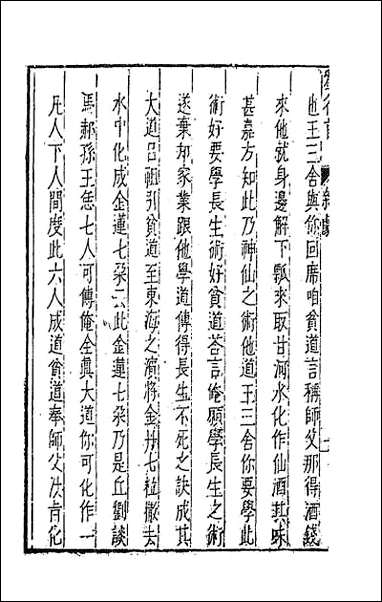 也王三舍與你回席咱貧道言稱師父那得酒錢
來他就身邊解下瓢來取甘河水化作仙酒其味
甚嘉方知此乃神仙之術他道王三舍你要學此
術好要學長生術好貧道荅言俺願學長生之術
遂棄却家業跟他學道傳得長生不死之訣成其
大道呂祖引貧道至東海之濵將金丹七粒撤去
水中化成金蓮七朶云此金蓮七朶乃是丘劉談
馬郝孫王恁七人可傳俺全眞大道你可化作一
凡人下人間度此六人成道貧道奉師父法旨化